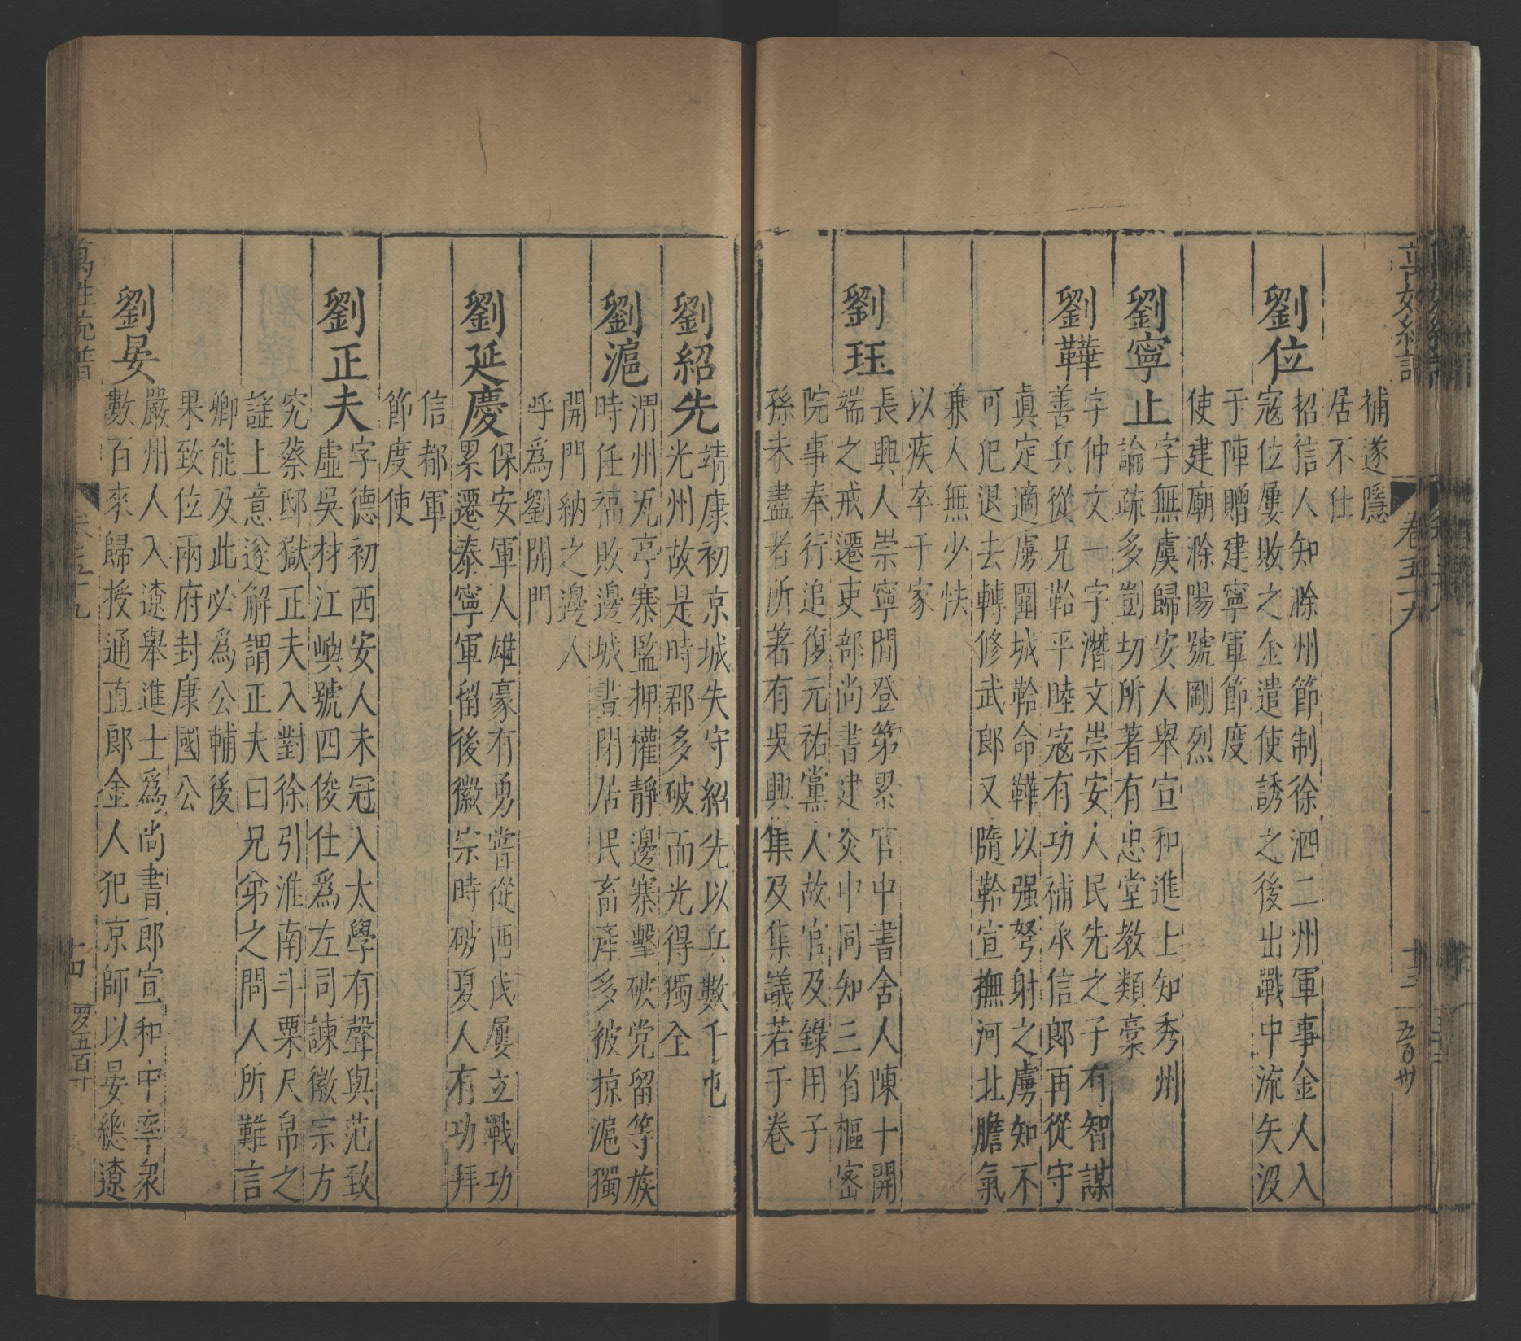 萬姓統譜
卷五十九
十三
補遂隱
居不仕
劉位
招信人知滁州節制徐泗二州軍事金人入
寇位屢敗之金遣使誘之後出戰中流矢沒
于陣贈建寧軍節度
使建廟滁陽號剛烈
劉寧止
字無虞歸安人舉宣和進士知秀州
論疏多剴切所著有忠堂教類稾
劉韡
字仲文一字潛文崇安人民先之子有智謀
善兵從兄鞈平睦寇有功補承信郎再從守
眞定適虜圍城鞈命韡以强弩射之虜知不
可犯退去轉修武郎又隨鞈宣撫河北膽氣
兼人無少怯
以疾卒于家
劉珏
長興人崇寧間登第累官中書舍人陳十開
端之戒遷吏部尚書建炎中同知三省樞密
院事奉行追復元祐黨人故官及錄用子
孫未盡者所著有吳興集及集議若于卷
劉紹先
靖康初京城失守紹先以兵數千屯
光州故是時郡多破而光得獨全
劉滬
渭州瓦亭寨監押權靜邊寨擊破党留等族
時任福敗邊城晝閉居民畜產多被掠滬獨
開門納之邊人
呼爲劉開門
劉延慶
保安軍人雄豪有勇嘗從西伐屢立戰功
累遷泰寧軍留後徽宗時破夏人有功拜
信都軍
節度使
劉正夫
字德初西安人未冠入太學有聲與范致
虛吳材江嶼號四俊仕爲左司諫徽宗方
究蔡邸獄正夫入對徐引淮南斗粟尺帛之
謠上意遂解謂正夫曰兄弟之間人所難言
卿能及此必爲公輔後
果致位兩府封康國公
劉晏
嚴州人入遼舉進士爲尚書郎宣和中率衆
數百來歸授通直郎金人犯京師以晏緫遼
萬姓統譜
卷五十九
十四